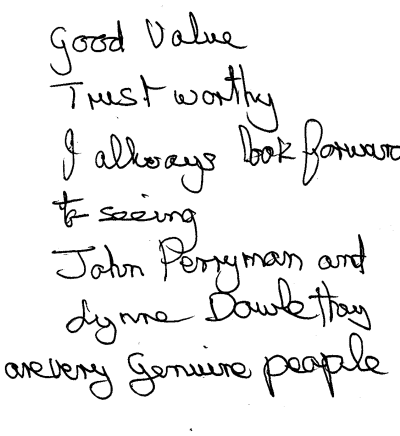 Good Value
Trustworthy
I allways look forward
to seeing
John Perryman and
Lynne Dawe they
are very Genuine people